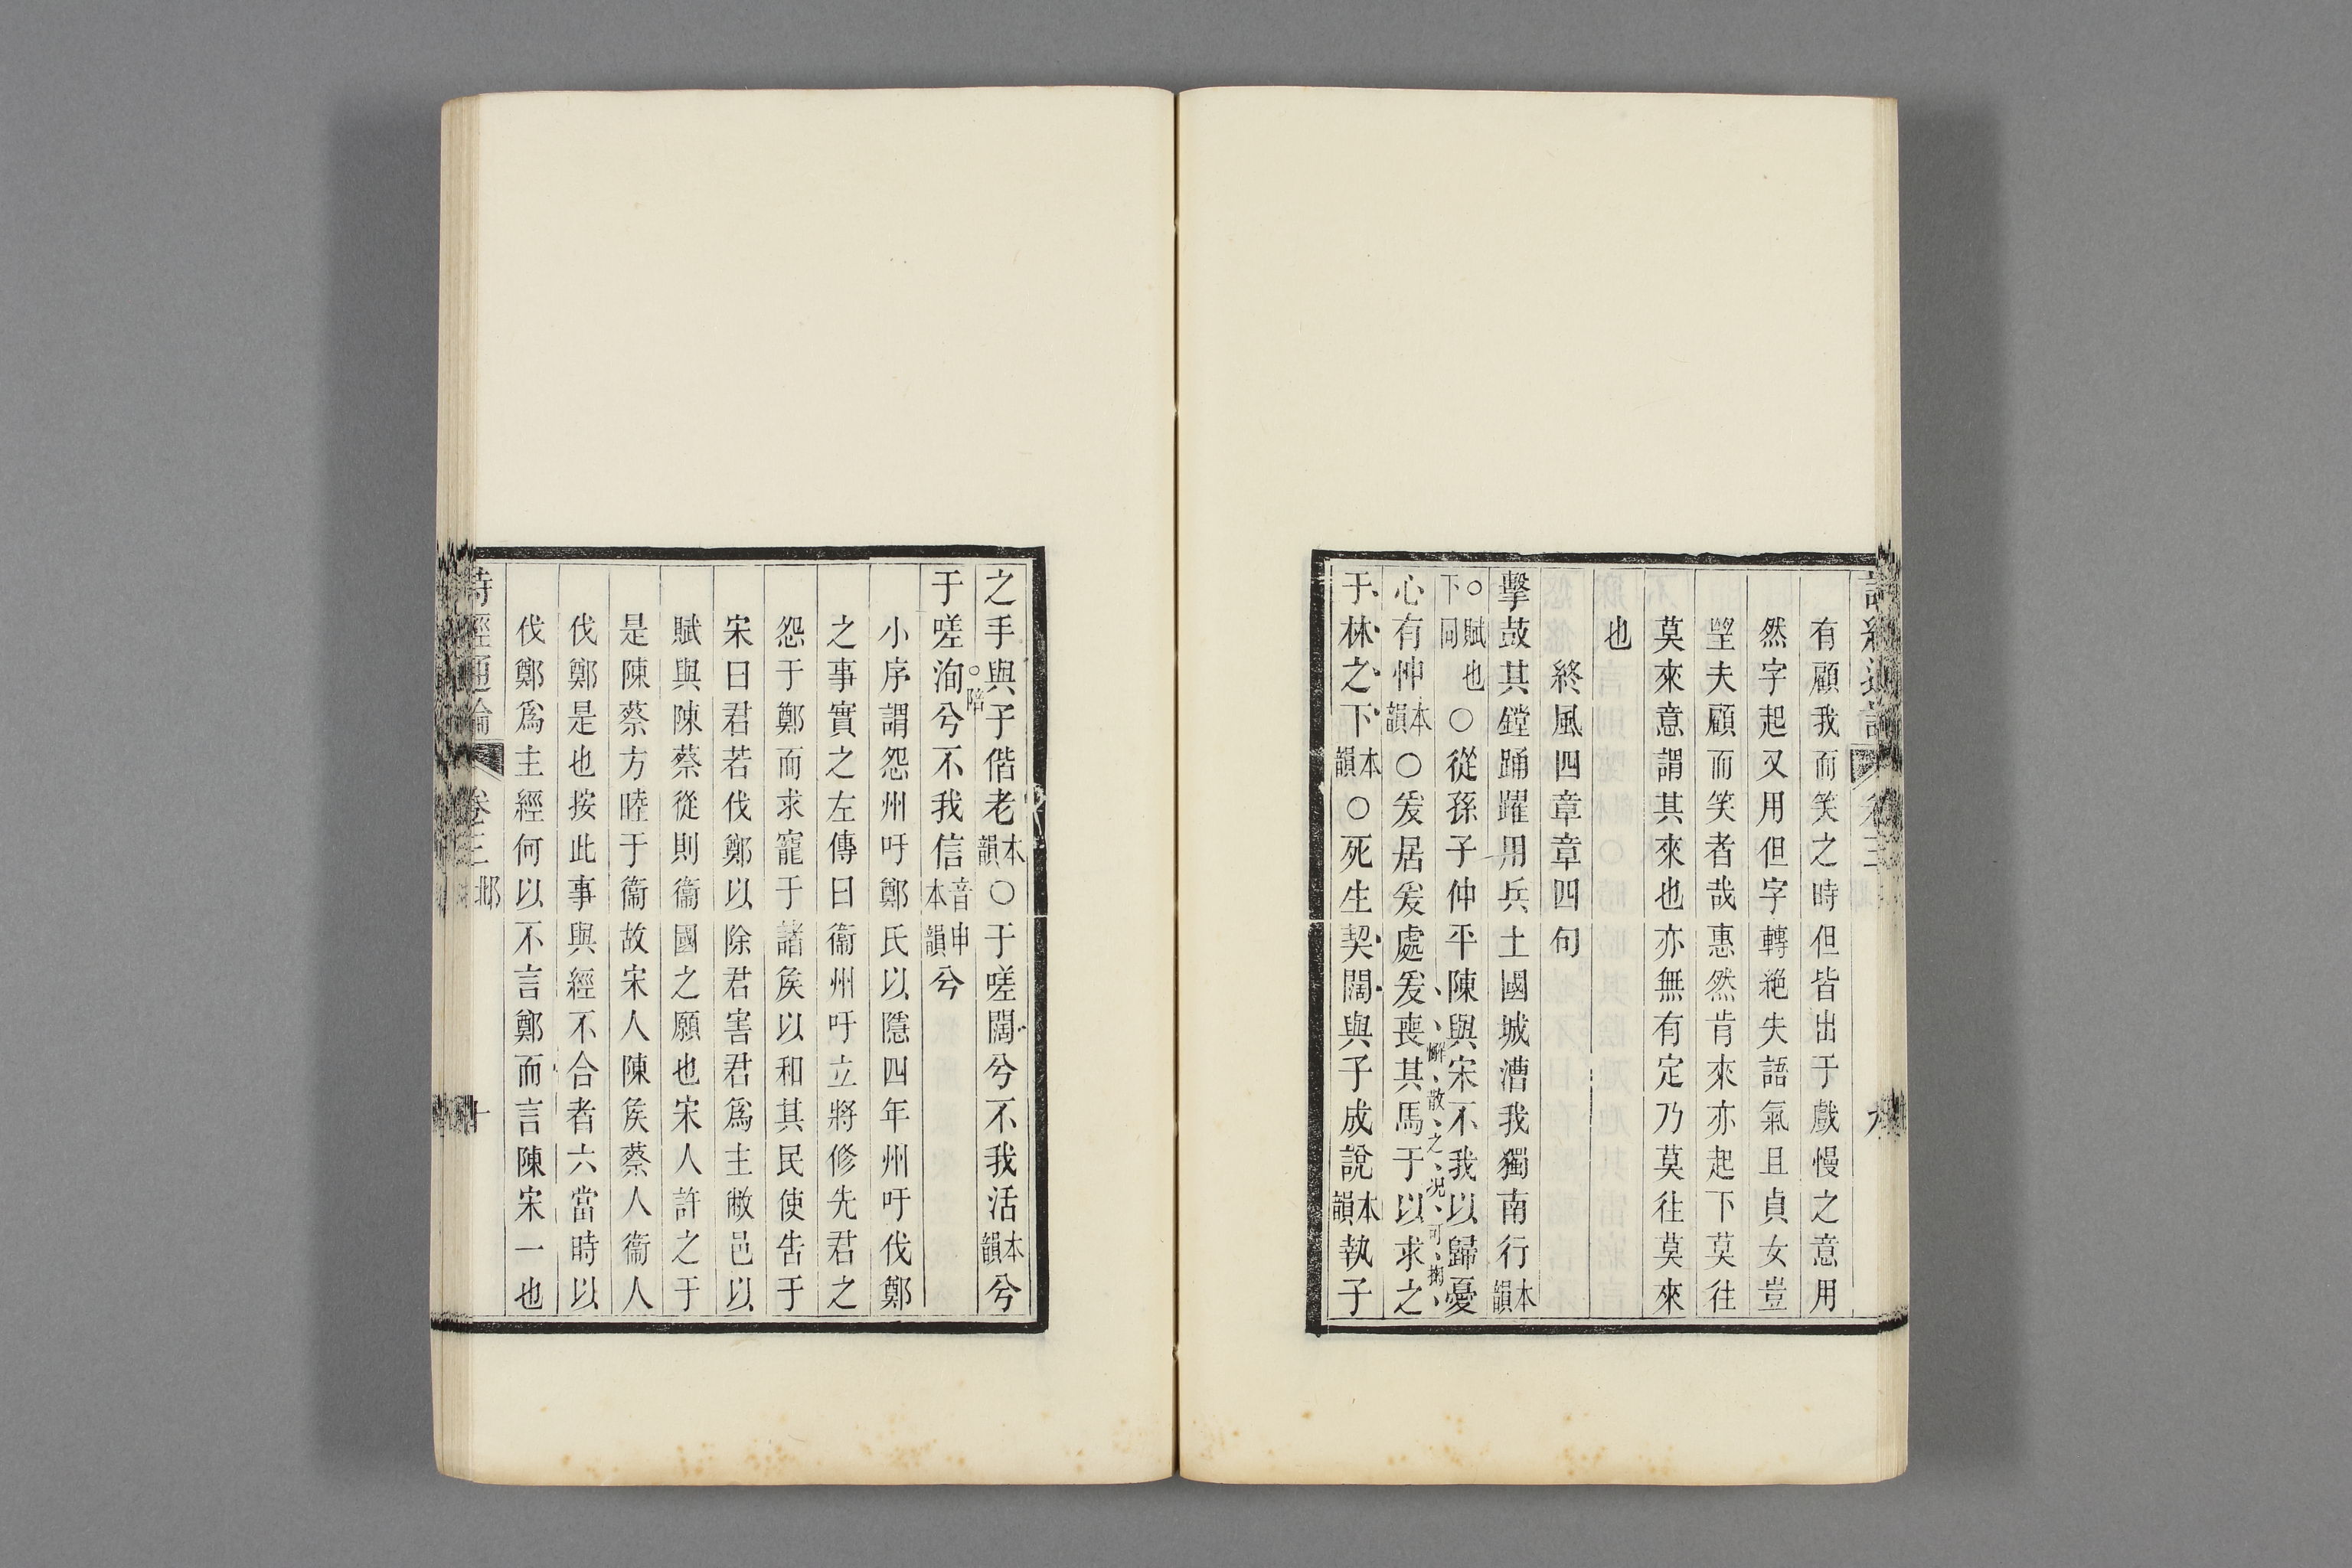 有顧我而笑之時但皆出于戲慢之意用
然字起又用但字轉絕失語氣且貞女豈
望夫顧而笑者哉惠然肯來亦起下莫往
莫來意謂其來也亦無有定乃莫往莫來
也
終風四章章四句
擊鼓其鏜踊躍用兵土國城漕我獨南行本韻
○賦也下同○從孫子仲平陳與宋不我以歸憂
心有忡本韻○爰居爰處爰喪其馬于以求之
懈散之況可掬
于林之下本韻○死生契闊與子成說本韻執子
之手與子偕老本韻○于嗟闊兮不我活本韻兮
○陪
于嗟洵兮不我信音申本韻兮
小序謂怨州吁鄭氏以隱四年州吁伐鄭
之事實之左傳曰衞州吁立將修先君之
怨于鄭而求寵于諸矦以和其民使告于
宋曰君若伐鄭以除君害君爲主敝邑以
賦與陳蔡從則衞國之願也宋人許之于
是陳蔡方睦于衞故宋人陳矦蔡人衞人
伐鄭是也按此事與經不合者六當時以
伐鄭爲主經何以不言鄭而言陳宋一也
詩經通論 卷三 邶 十